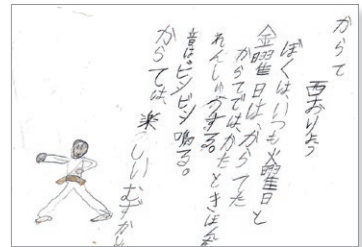 からて
西おりょう
ぼくはいつも火曜日と
金曜日は、からてだ
からてではかたときほん
れんしゅうする。
音はビシビシ鳴る。
からては、楽しいむずか